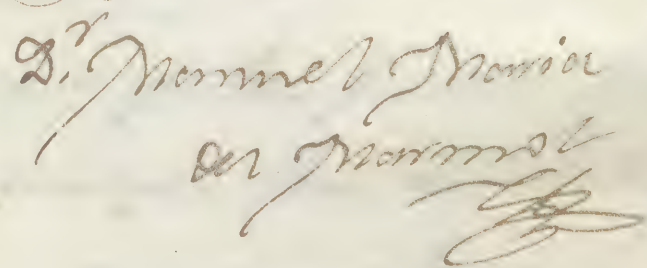 Dr. Manuel Maria
del Marmol